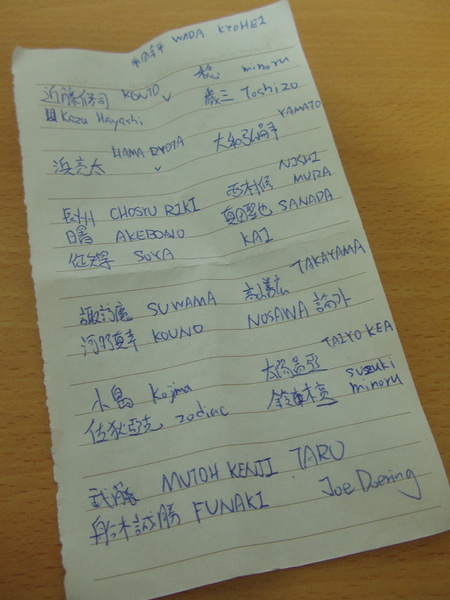 WADA KYOHEI
近藤修司 KONDO 稔 minoru
Kazu Hayashi 歳三 Toshizo
浜亮太 HAMA RYOTA 大和 YAMATO
長州 CHOSYU RIKI 西村 NISHI MURA
曙 AKEBONO 真田聖也 SANADA
征矢学 SOYA KAI
諏訪魔 SUWAMA TAKAYAMA
河野真幸 KOUNO NOSAWA 論外
小島 Kojima 太陽 TAIYO KEA
zodiac 鈴木 suzuki minoru
武藤 MUTOH KENJI TARU
船木誠勝 FUNAKI Joe Doering